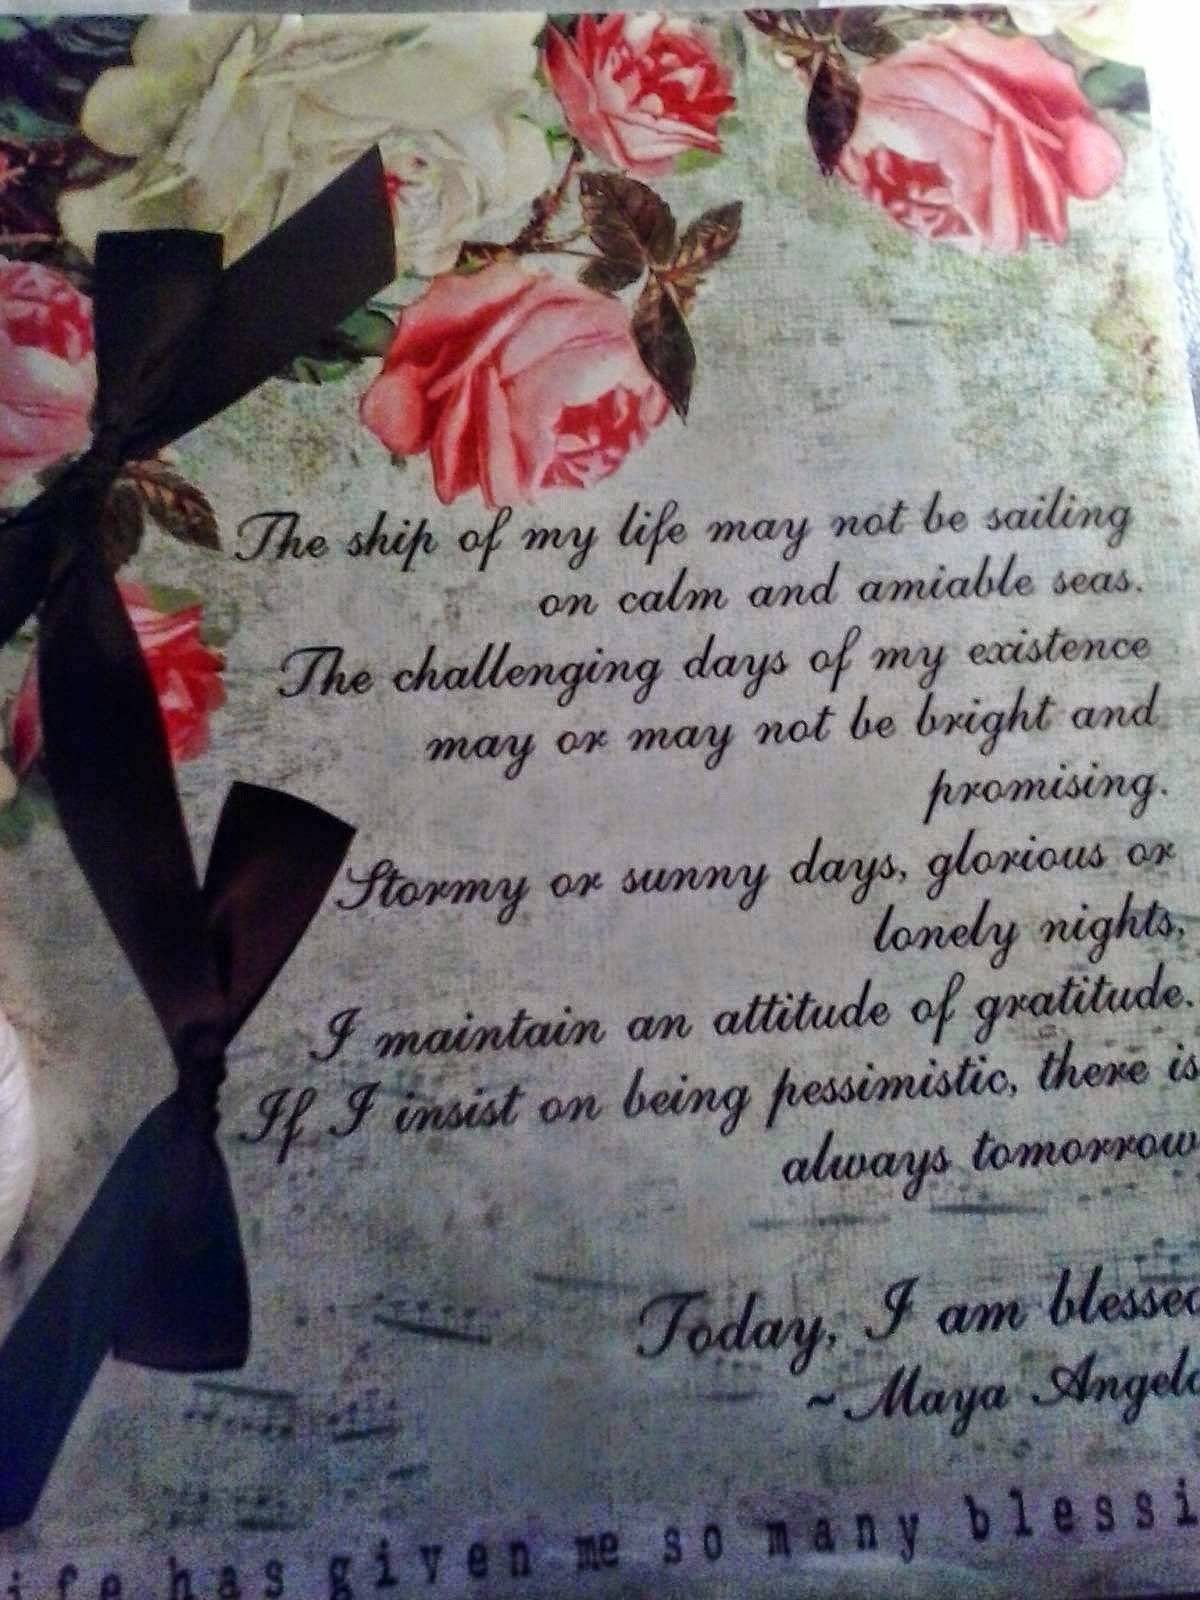 The ship of my life may not be sailing
on calm and amiable seas.
The challenging days of my existence
may or may not be bright and
promising.
Stormy or sunny days, glorious or
lonely nights,
I maintain an attitude of gratitude.
If I insist on being pessimistic, there is
always tomorrow
Today, I am blessed
~Maya Angelo
ife has given me so many blessi